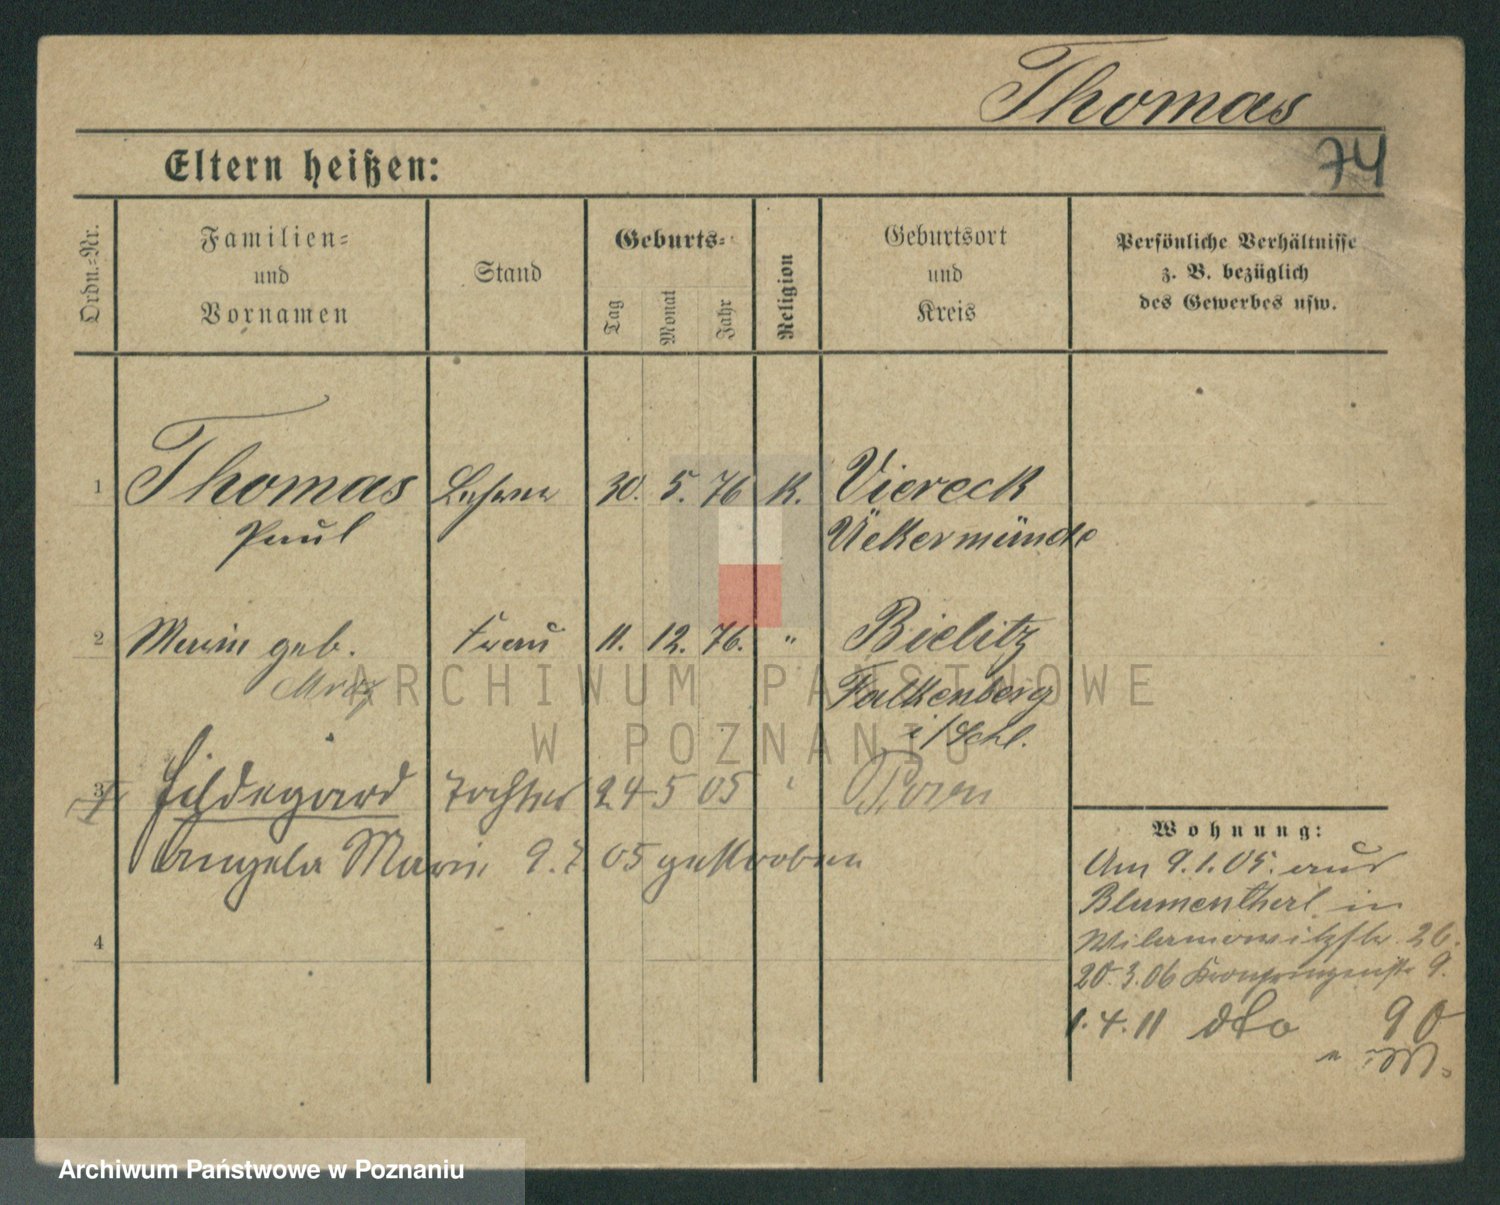 Thomas
Eltern heißen:
74
Ordn.-Nr.
Familien-
und
Vornamen
Stand
Geburts-
Tag
Monat
Jahr
Religion
Geburtsort
und
Kreis
Persönliche Verhältnisse
z. B. bezüglich
des Gewerbes usw.
1 Thomas Lehrer 30. 5. 76 K. Viereck
Paul Ückermünde
2 Marie geb. Frau 11. 12. 76. " Bielitz
Mroz Falkenberg
i/Schl.
3 Hildegard Tochter 24 5 05 Posen
Angela Marie 9. 7 05 gestorben
4
Wohnung:
Am 9.1.05. aus
Blumenthal in
Wilamowitzstr. 26.
20.3.06 Kronprinzenstr 9.
1.4.11 dto 90
ARCHIWUM PAŃSTWOWE
W POZNANIU
Archiwum Państwowe w Poznaniu